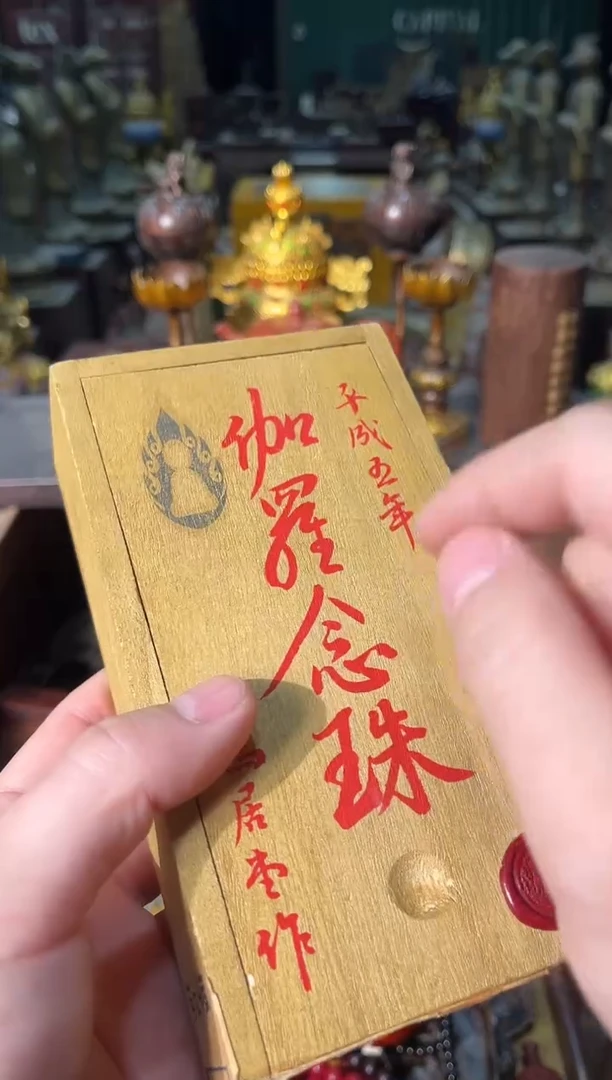 平成五年
伽羅念珠
居士作